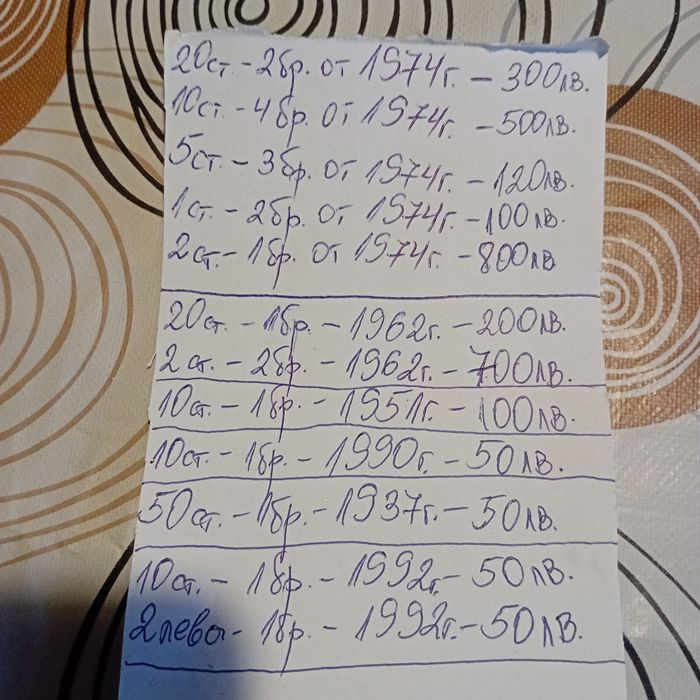 20ст. - 2бр. от 1974г. - 300лв.
10ст. - 4бр. от 1974г. - 500лв.
5ст. - 3бр. от 1974г. - 120лв.
1ст. - 2бр. от 1974г. - 100лв.
2ст. - 1бр. от 1974г. - 800лв
20ст. - 1бр. - 1962г. - 200лв.
2ст. - 2бр. - 1962г. - 700лв.
10ст. - 1бр. - 1951г. - 100лв.
10ст. - 1бр. - 1990г. - 50лв.
50ст. - 1бр. - 1937г. - 50лв.
10ст. - 1бр. - 1992г. - 50лв.
2лева - 1бр. - 1992г. - 50лв.